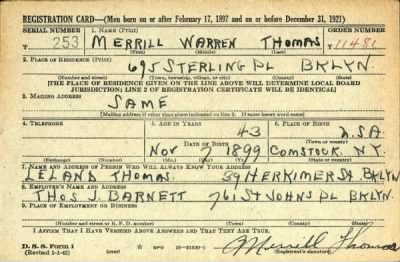 REGISTRATION CARD—(Men born on or after February 17, 1897 and on or before December 31, 1921)
SERIAL NUMBER 1. NAME (Print) ORDER NUMBER
253 MERRILL WARREN THOMAS 11481
(First) (Middle) (Last)
2. PLACE OF RESIDENCE (Print)
695 STERLING PL BKLYN
(Number and street) (Town, township, village, or city) (County) (State)
[THE PLACE OF RESIDENCE GIVEN ON THE LINE ABOVE WILL DETERMINE LOCAL BOARD
JURISDICTION; LINE 2 OF REGISTRATION CERTIFICATE WILL BE IDENTICAL]
3. MAILING ADDRESS
SAME
[Mailing address if other than place indicated on line 2. If same insert word same]
4. TELEPHONE 5. AGE IN YEARS 6. PLACE OF BIRTH
43 U.S.A.
DATE OF BIRTH (Town or county)
NOV 7 1899 COMSTOCK N.Y.
(Exchange) (Number) (Mo.) (Day) (Yr.) (State or country)
7. NAME AND ADDRESS OF PERSON WHO WILL ALWAYS KNOW YOUR ADDRESS
LELAND THOMAS 39 HERKIMER ST. BKLYN
8. EMPLOYER'S NAME AND ADDRESS
THOS J. BARNETT 761 ST JOHNS PL BKLYN.
9. PLACE OF EMPLOYMENT OR BUSINESS
(Number and street or R. F. D. number) (Town) (County) (State)
I AFFIRM THAT I HAVE VERIFIED ABOVE ANSWERS AND THAT THEY ARE TRUE.
D. S. S. Form 1
(Revised 1-1-42) (over) GPO 16—21630-1 (Registrant's signature)
Merrill Thomas